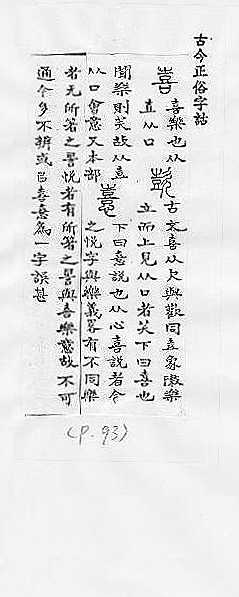 古今正俗字詁
喜 喜樂也从
壴从口
歖 古文喜从欠與歡同壴象陳樂
立而上見从口者笑下曰喜也
聞樂則笑故从壴
从口會意又本部
憙 下曰憙說也从心喜說者今
之悅字與樂義畧有不同樂
者无所著之詈悅者有所著之詈與喜樂意故不可
通今多不辨或㠯喜憙為一字誤甚
(P. 93)